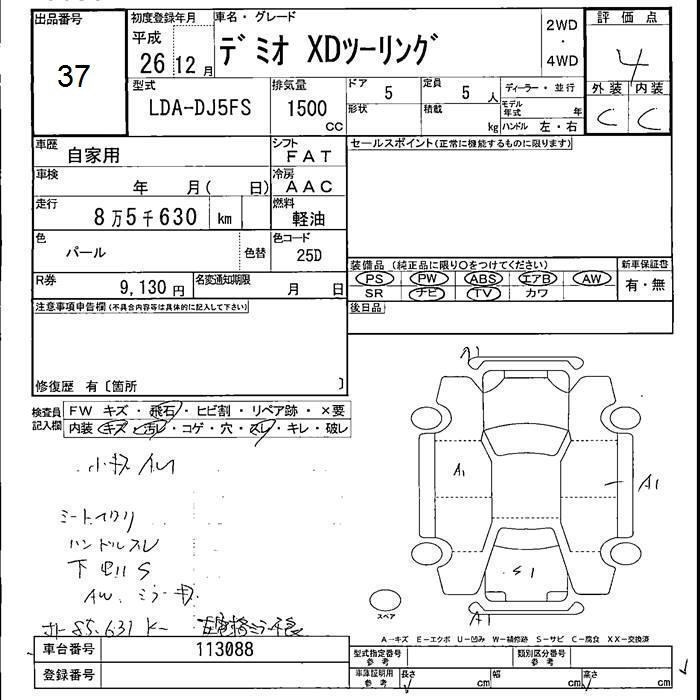 出品番号
37
初度登録年月
平成
26 12 月
車名・グレード
デミオ XDツーリング
2WD
・
4WD
評価点
4
外装 内装
C C
型式
LDA-DJ5FS
排気量
1500
cc
ドア
5
定員
5 人
ディーラー・並行
形状
積載
kg
モデル年式
年
ハンドル 左・右
車歴
自家用
シフト
FAT
セールスポイント(正常に機能するものに限ります)
車検
年 月( 日)
冷房
AAC
走行
8万5千630 km
燃料
軽油
色
パール
色替
色コード
25D
装備品 (純正品に限り○をつけてください)
新車保証書
PS PW ABS エアB AW
有・無
SR ナビ TV カワ
R券
9,130 円
名変通知期限
月 日
後日品
注意事項申告欄(不具合内容等は具体的に記入して下さい)
修復歴 有〔箇所 〕
検査員
記入欄
FW キズ・飛石・ヒビ割・リペア跡・×要
内装 キズ・汚レ・コゲ・穴・スレ・キレ・破レ
小キズ AU
シートイタリ
ハンドルスレ
下 S
AW、ミラーキズ
85,631 K
A1
A1
S1
A1
スペア
A-キズ E-エクボ U-凹み W-補修跡 S-サビ C-腐食 XX-交換済
車台番号
113088
型式指定番号
参考
類別区分番号
参考
登録番号
車庫証明用
参考
長さ
cm
幅
cm
高さ
cm